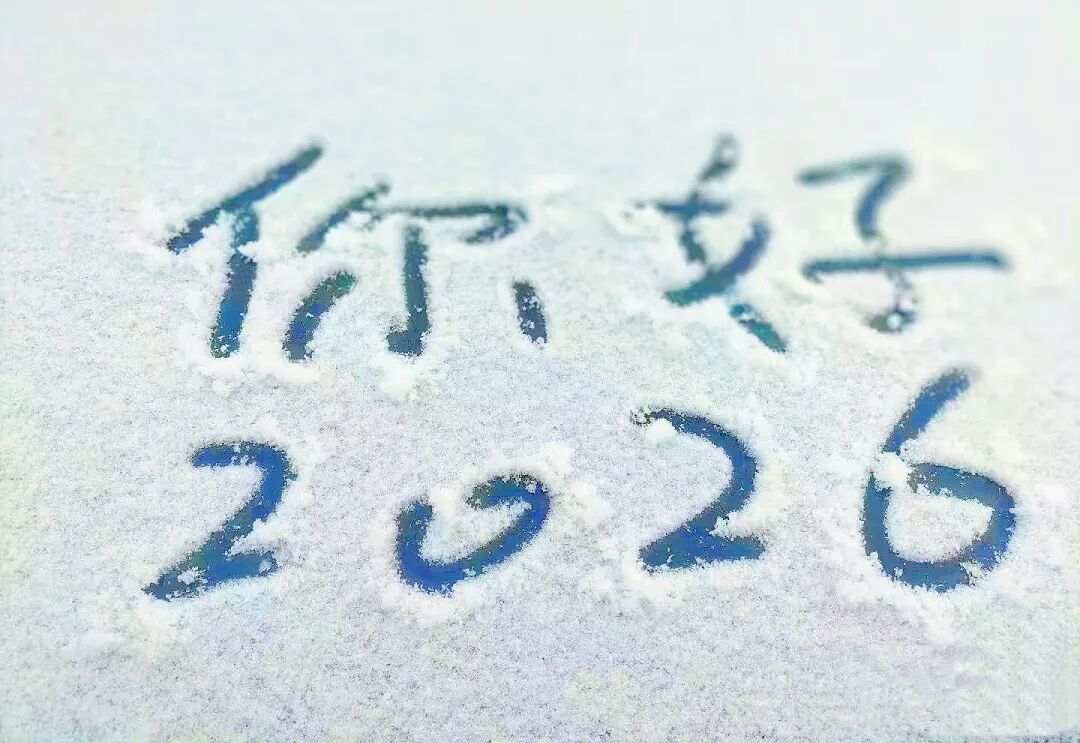 你好
2026